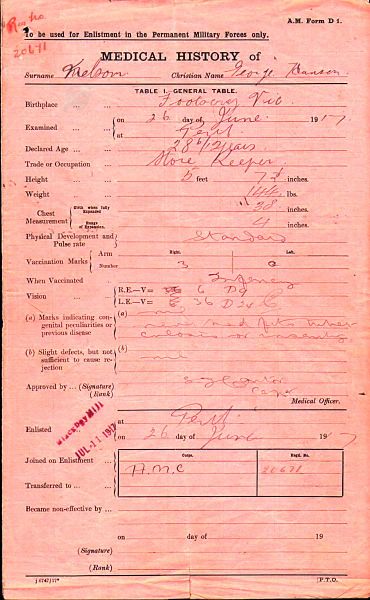 A.M. Form D 1.
To be used for Enlistment in the Permanent Military Forces only.
20671
MEDICAL HISTORY of
Surname Nelson Christian Name George Hanson
TABLE I.—GENERAL TABLE.
Birthplace Footscray Vic
Examined on 26 day of June 1917
at Perth
Declared Age 28 6/12 years
Trade or Occupation Store Keeper
Height 5 feet 7 inches
Weight 144 lbs.
Chest Measurement Girth when fully Expanded 38 inches
Range of Expansion 4 inches
Physical Development and Pulse rate Standard
Vaccination Marks Arm Right. Left.
Number 3 0
When Vaccinated Infancy
Vision R.E.—V= 6 D
L.E.—V= 6 36 D
(a) Marks indicating congenital peculiarities or previous disease (a) nil
never had fits tuber
culosis or insanity
(b) Slight defects, but not sufficient to cause rejection (b) nil
Approved by (Signature)
(Rank) Capt
Medical Officer.
Enlisted at Perth
on 26 day of June 1917
JUL 11 1917
Joined on Enlistment Corps. Regtl. No.
A.M.C 20671
Transferred to
Became non-effective by
on day of 19
(Signature)
(Rank)
[P.T.O.